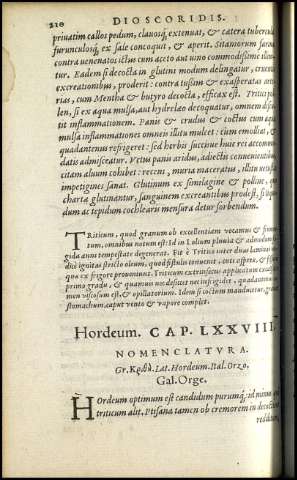 210 DIOSCORIDIS.
priuatim callos pedum, clauosq́; extenuat, & catera tubercula
furunculosq́, ex sale concoquit, & aperit. Sitamorum farina
contra uenenatos ictus cum aceto aut uino commodissime illini-
tur. Eadem si decocta in glutini modum delingatur, cruentis
excreationibus, proderit: contra tussim & exasperatas arte-
rias, cum Mentha & butyro decocta, efficax est. Tritici pol-
len, si ex aqua mulsa, aut hydrelæo decoquatur, omnem discu-
tit inflammationem. Panis & crudus & coctus cum aqua
mulsa inflammationes omneis illitu mulcet: cum emolliat, &
quadantenus refrigeret: sed herbis succisue huic rei accommo-
datis admisceatur. Vetus panis aridus, adiectis conuenientibus,
citam aluum cohibet: recens, muria maceratus, illitu uetustas
impetigines sanat. Glutinum ex similagine & polline, quo
chartæ glutinantur, sanguinem excreantibus prodest, si liqui-
dum ac tepidum cochlearis mensura detur sorbendum.
TRiticum, quod granum ob excellentiam vocamus & frumen-
tum, omnibus notum est: Id in Lolium pluuia & admodum fri-
gida anni tempestate degenerat. Fit è Tritico inter duas laminas
dicè ignitas stricto oleum, quod fistulis iniectum, cuti asperæ, &
quæ ex frigore proueniunt. Triticum extrinsecus appositum excalfacit
primo gradu, & quamuis nec desiccet nec infrigidet, quadantenus ta-
men viscosum est, & opillatorium. Idem si coctum manducetur, grauat
stomachum, caput vento & vapore complet.
Hordeum. CAP. LXXVIII.
NOMENCLATVRA.
Gr. Κριθὴ. Lat. Hordeum. Ital. Orzo.
Gal. Orge.
HOrdeum optimum est candidum purumq́, id minus quàm
triticum alit. Ptisana tamen ob cremorem in decoctu